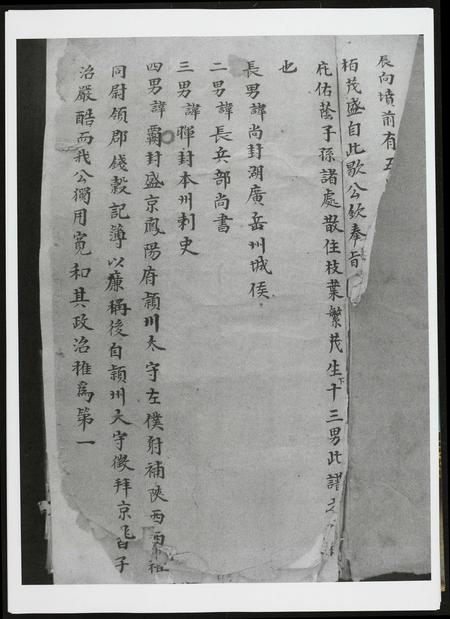 辰向墳前有五
栢茂盛自此歇公欽奉旨
庇佑蔭子孫諸處散住枝葉繁茂生下十三男此譜之
也
長男諱尚封湖廣岳州城侯
二男諱長兵部尚書
三男諱惲封本州刺史
四男諱霸封盛京鳳陽府潁川太守左僕射補陝西
同尉領郡錢穀記簿以廉稱後自潁州大守徵拜京兆尹子
治嚴酷而我公獨用寬和其政治推爲第一